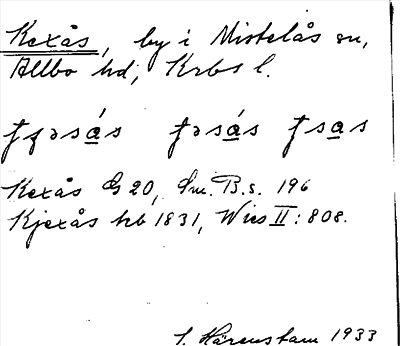 Kexås, by i Mistelås sn,
Allbo hd, Krbs l.
Kexås G 20, Sm. B.s. 196
Kjexås hb 1831, Wies II: 808.
Härenstam 1933